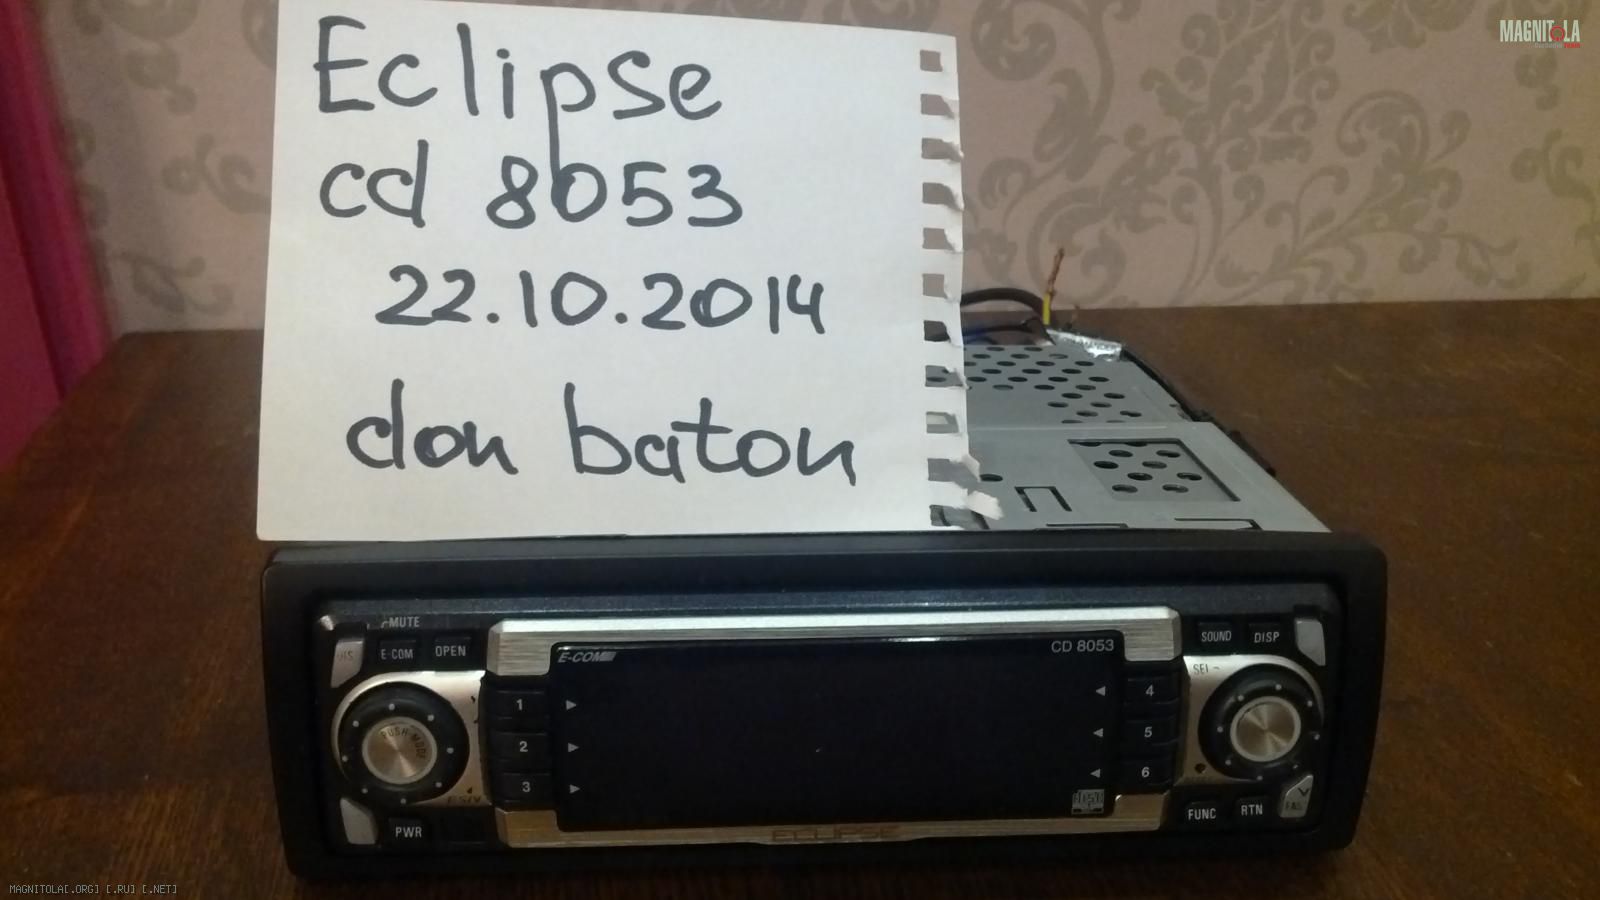 MAGNITOLA
Eclipse
cd 8053
22.10.2014
don baton
MUTE
E-COM OPEN
SOUND DISP
E-COM
CD 8053
SEL
1
2
3
4
5
6
PUSH-MODE
PWR
FUNC RTN
DISC
ECLIPSE
MAGNITOLA[.ORG] [.RU] [.NET]